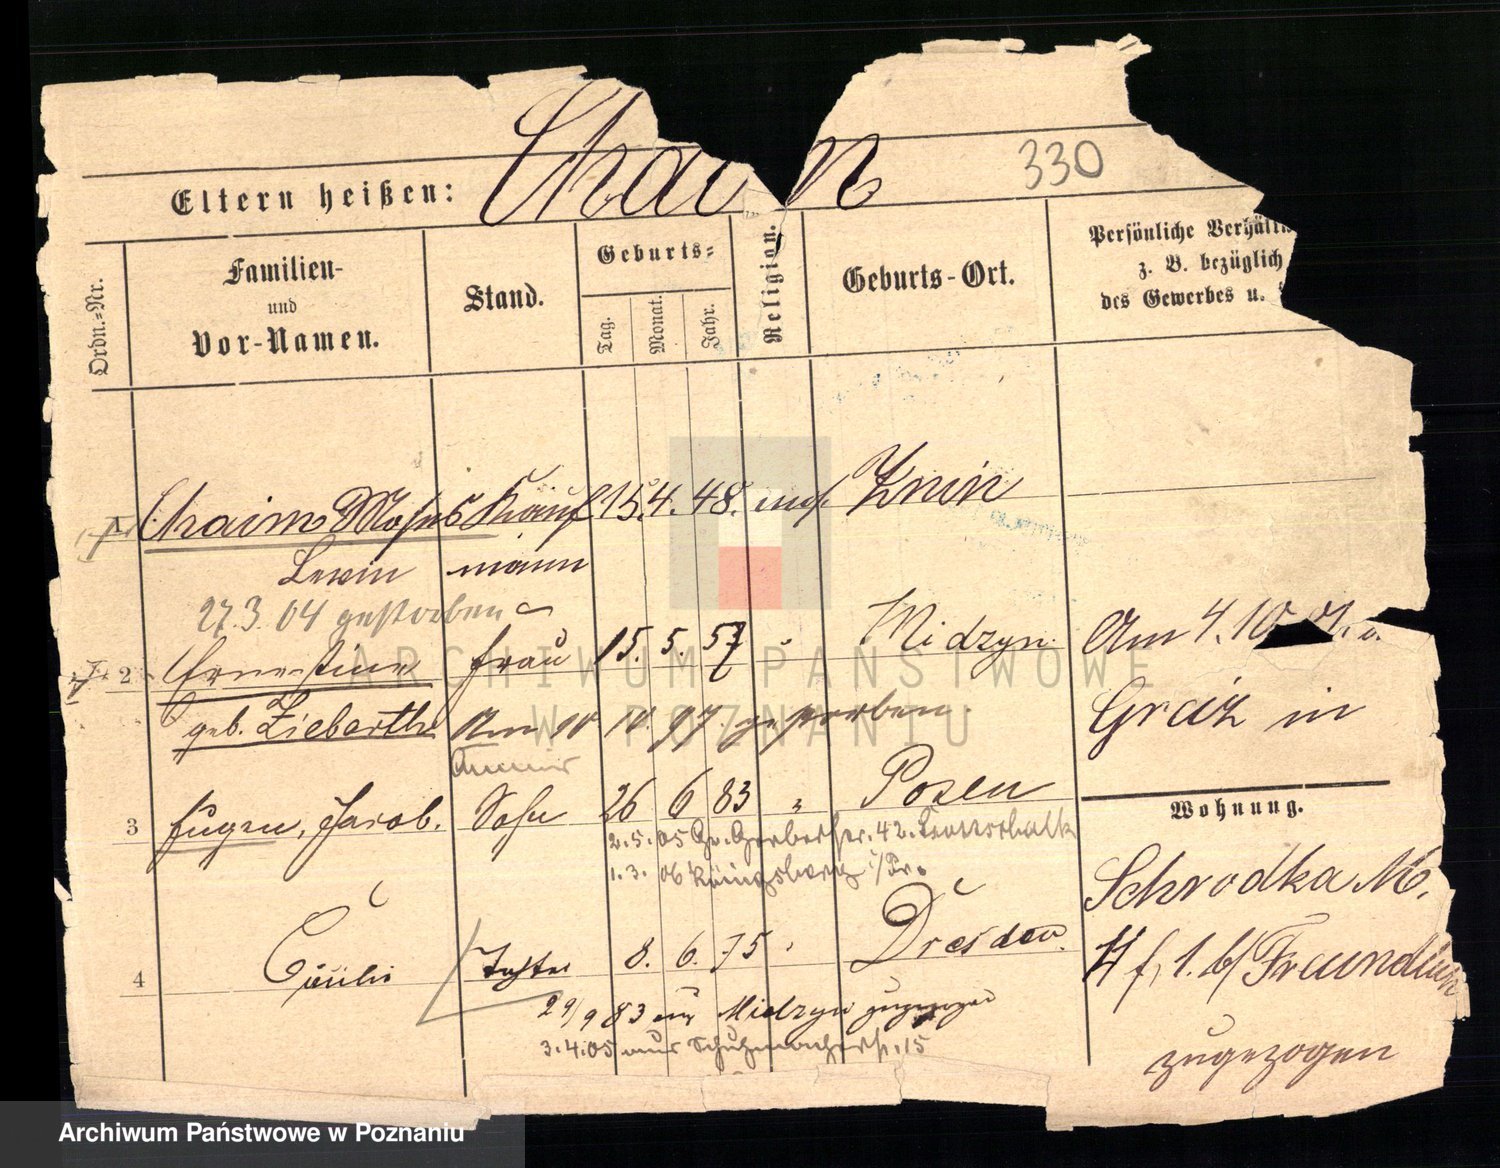 Chaim
330
Eltern heißen:
Ordn.-Nr.
Familien-
und
Vor-Namen.
Stand.
Geburts-
Tag.
Monat.
Jahr.
Religion.
Geburts-Ort.
Persönliche Verhält
z. B. bezüglich
des Gewerbes u.
1. Chaim Moses Kauf 15. 4. 48. mos. Znin
Lewin mann
27.3.04 gestorben
2 Ernestine Frau 15. 5. 57 " Midzyn. Am 4.10.01. n.
geb. Zieberth Am 10 10. 97. gestorben. Grätz in
3 Eugen, Jacob. Sohn 26 6 83 " Posen
Wohnung.
2.5.05 Gr. Gerberstr. 42.
1.3. 06 i/Pr.
Schrodka M.
4 Cäcilie Tochter 8. 6. 75 " Dresden.
H f, 1. b/ Freundlich
29/9 83 aus Midzyn zugezogen
3.4.05 aus Schuhmacherstr. 15
zugezogen
ARCHIWUM PAŃSTWOWE
W POZNANIU
Archiwum Państwowe w Poznaniu